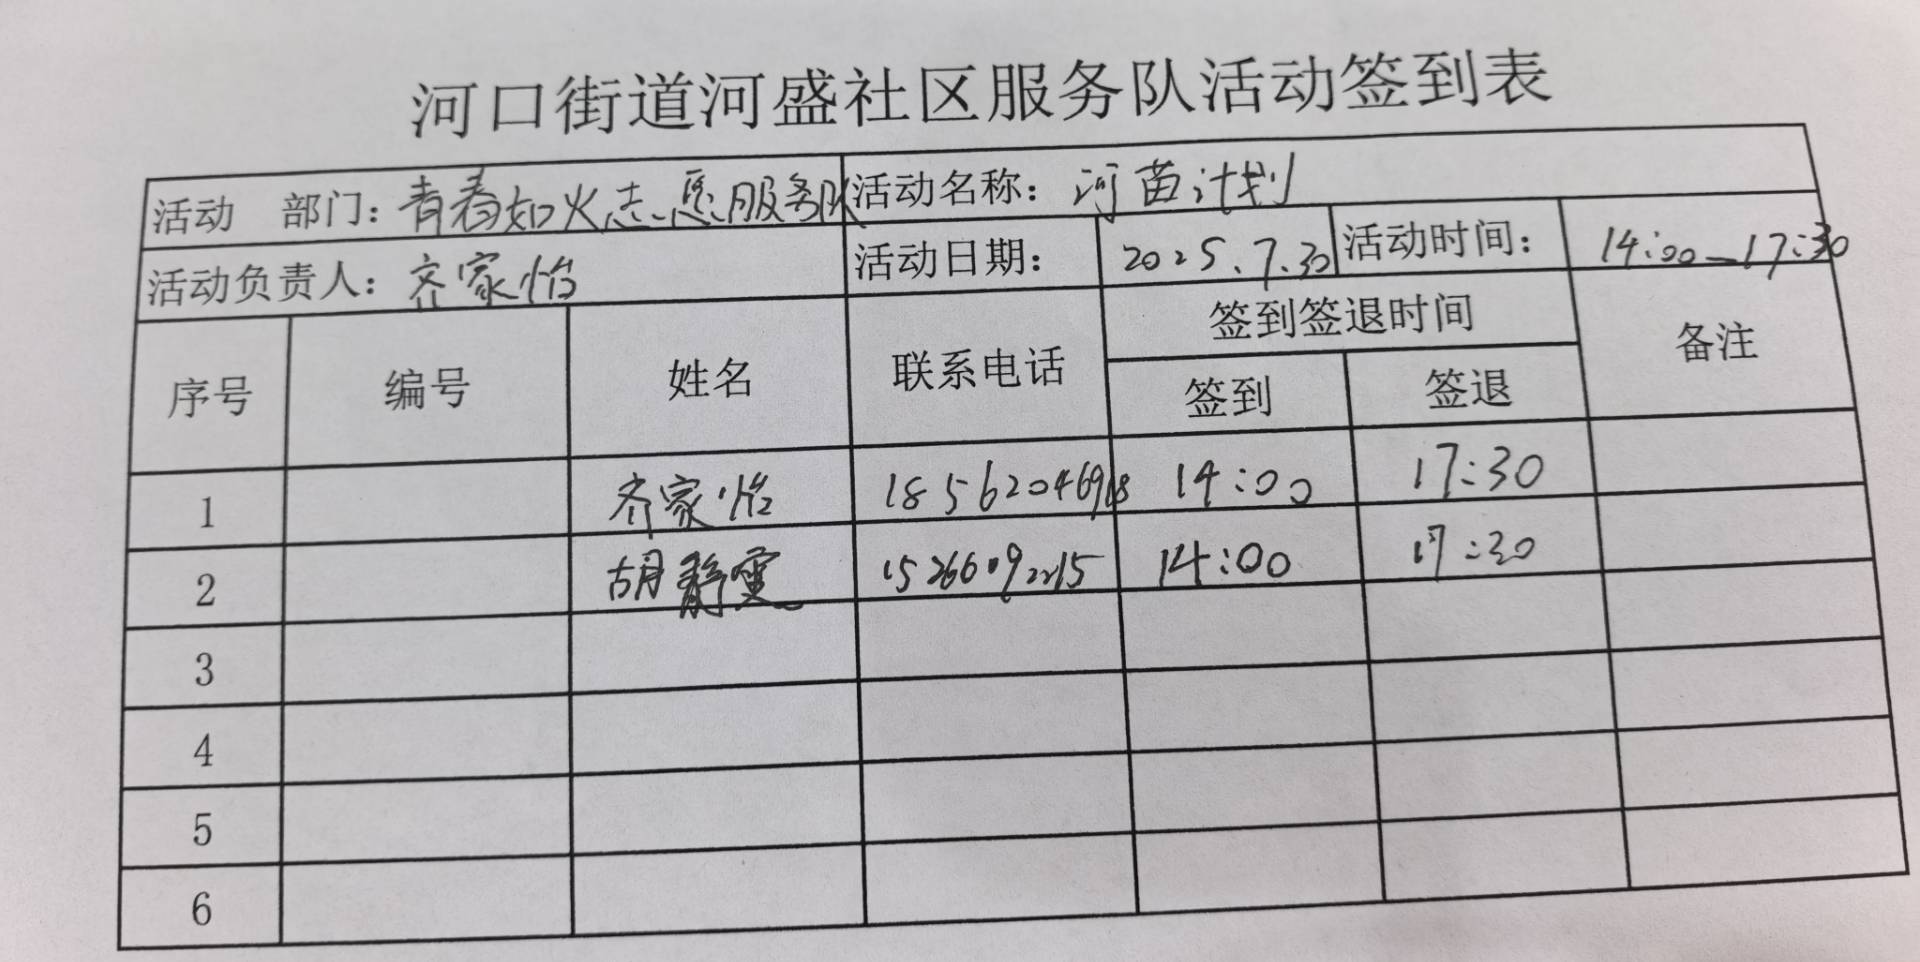 河口街道河盛社区服务队活动签到表
活动 部门：青春如火志愿服务队 活动名称：河苗计划
活动负责人：齐家怡 活动日期： 2025.7.30 活动时间： 14:00—17:30
序号 编号 姓名 联系电话 签到签退时间 备注
签到 签退
1 齐家怡 14:00 17:30
2 胡静雯 14:00 17:30
3
4
5
6